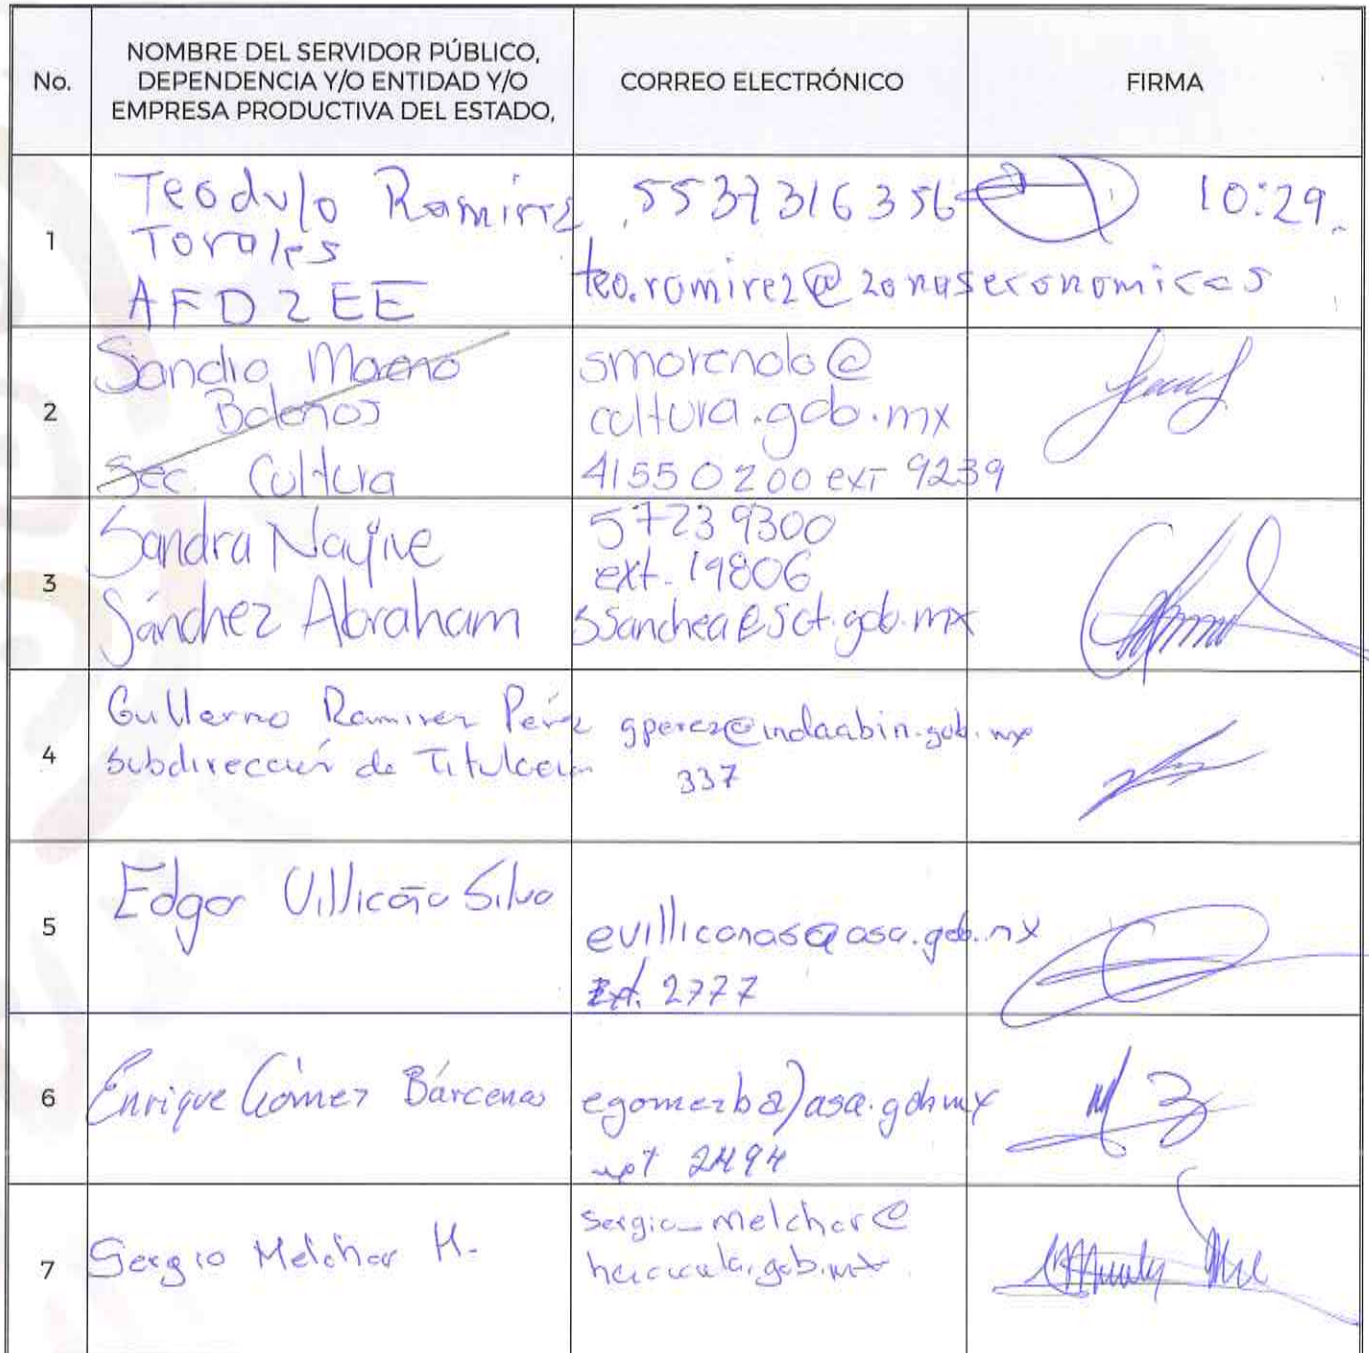 No.
NOMBRE DEL SERVIDOR PÚBLICO,
DEPENDENCIA Y/O ENTIDAD Y/O
EMPRESA PRODUCTIVA DEL ESTADO,
CORREO ELECTRÓNICO
FIRMA
1
Teodulo Ramirez
Torales
AFDZEE
5537316356
10:29
teo.ramirez@zonaseconomicas
2
Sandra Moreno
Bolaños
Sec. Cultura
smorenob@
cultura.gob.mx
41550200 ext 9239
3
Sandra Nayive
Sánchez Abraham
57239300
ext. 19806
ssanchea@sct.gob.mx
4
Guillermo Ramirez Pérez
Subdirección de Titulación
gperez@indaabin.gob.mx
337
5
Edgar Villicaña Silva
evillicanas@asa.gob.mx
Ext. 2777
6
Enrique Gómez Bárcenas
egomezb@asa.gob.mx
2494
7
Sergio Melchor H.
sergio_melchor@
hacienda.gob.mx